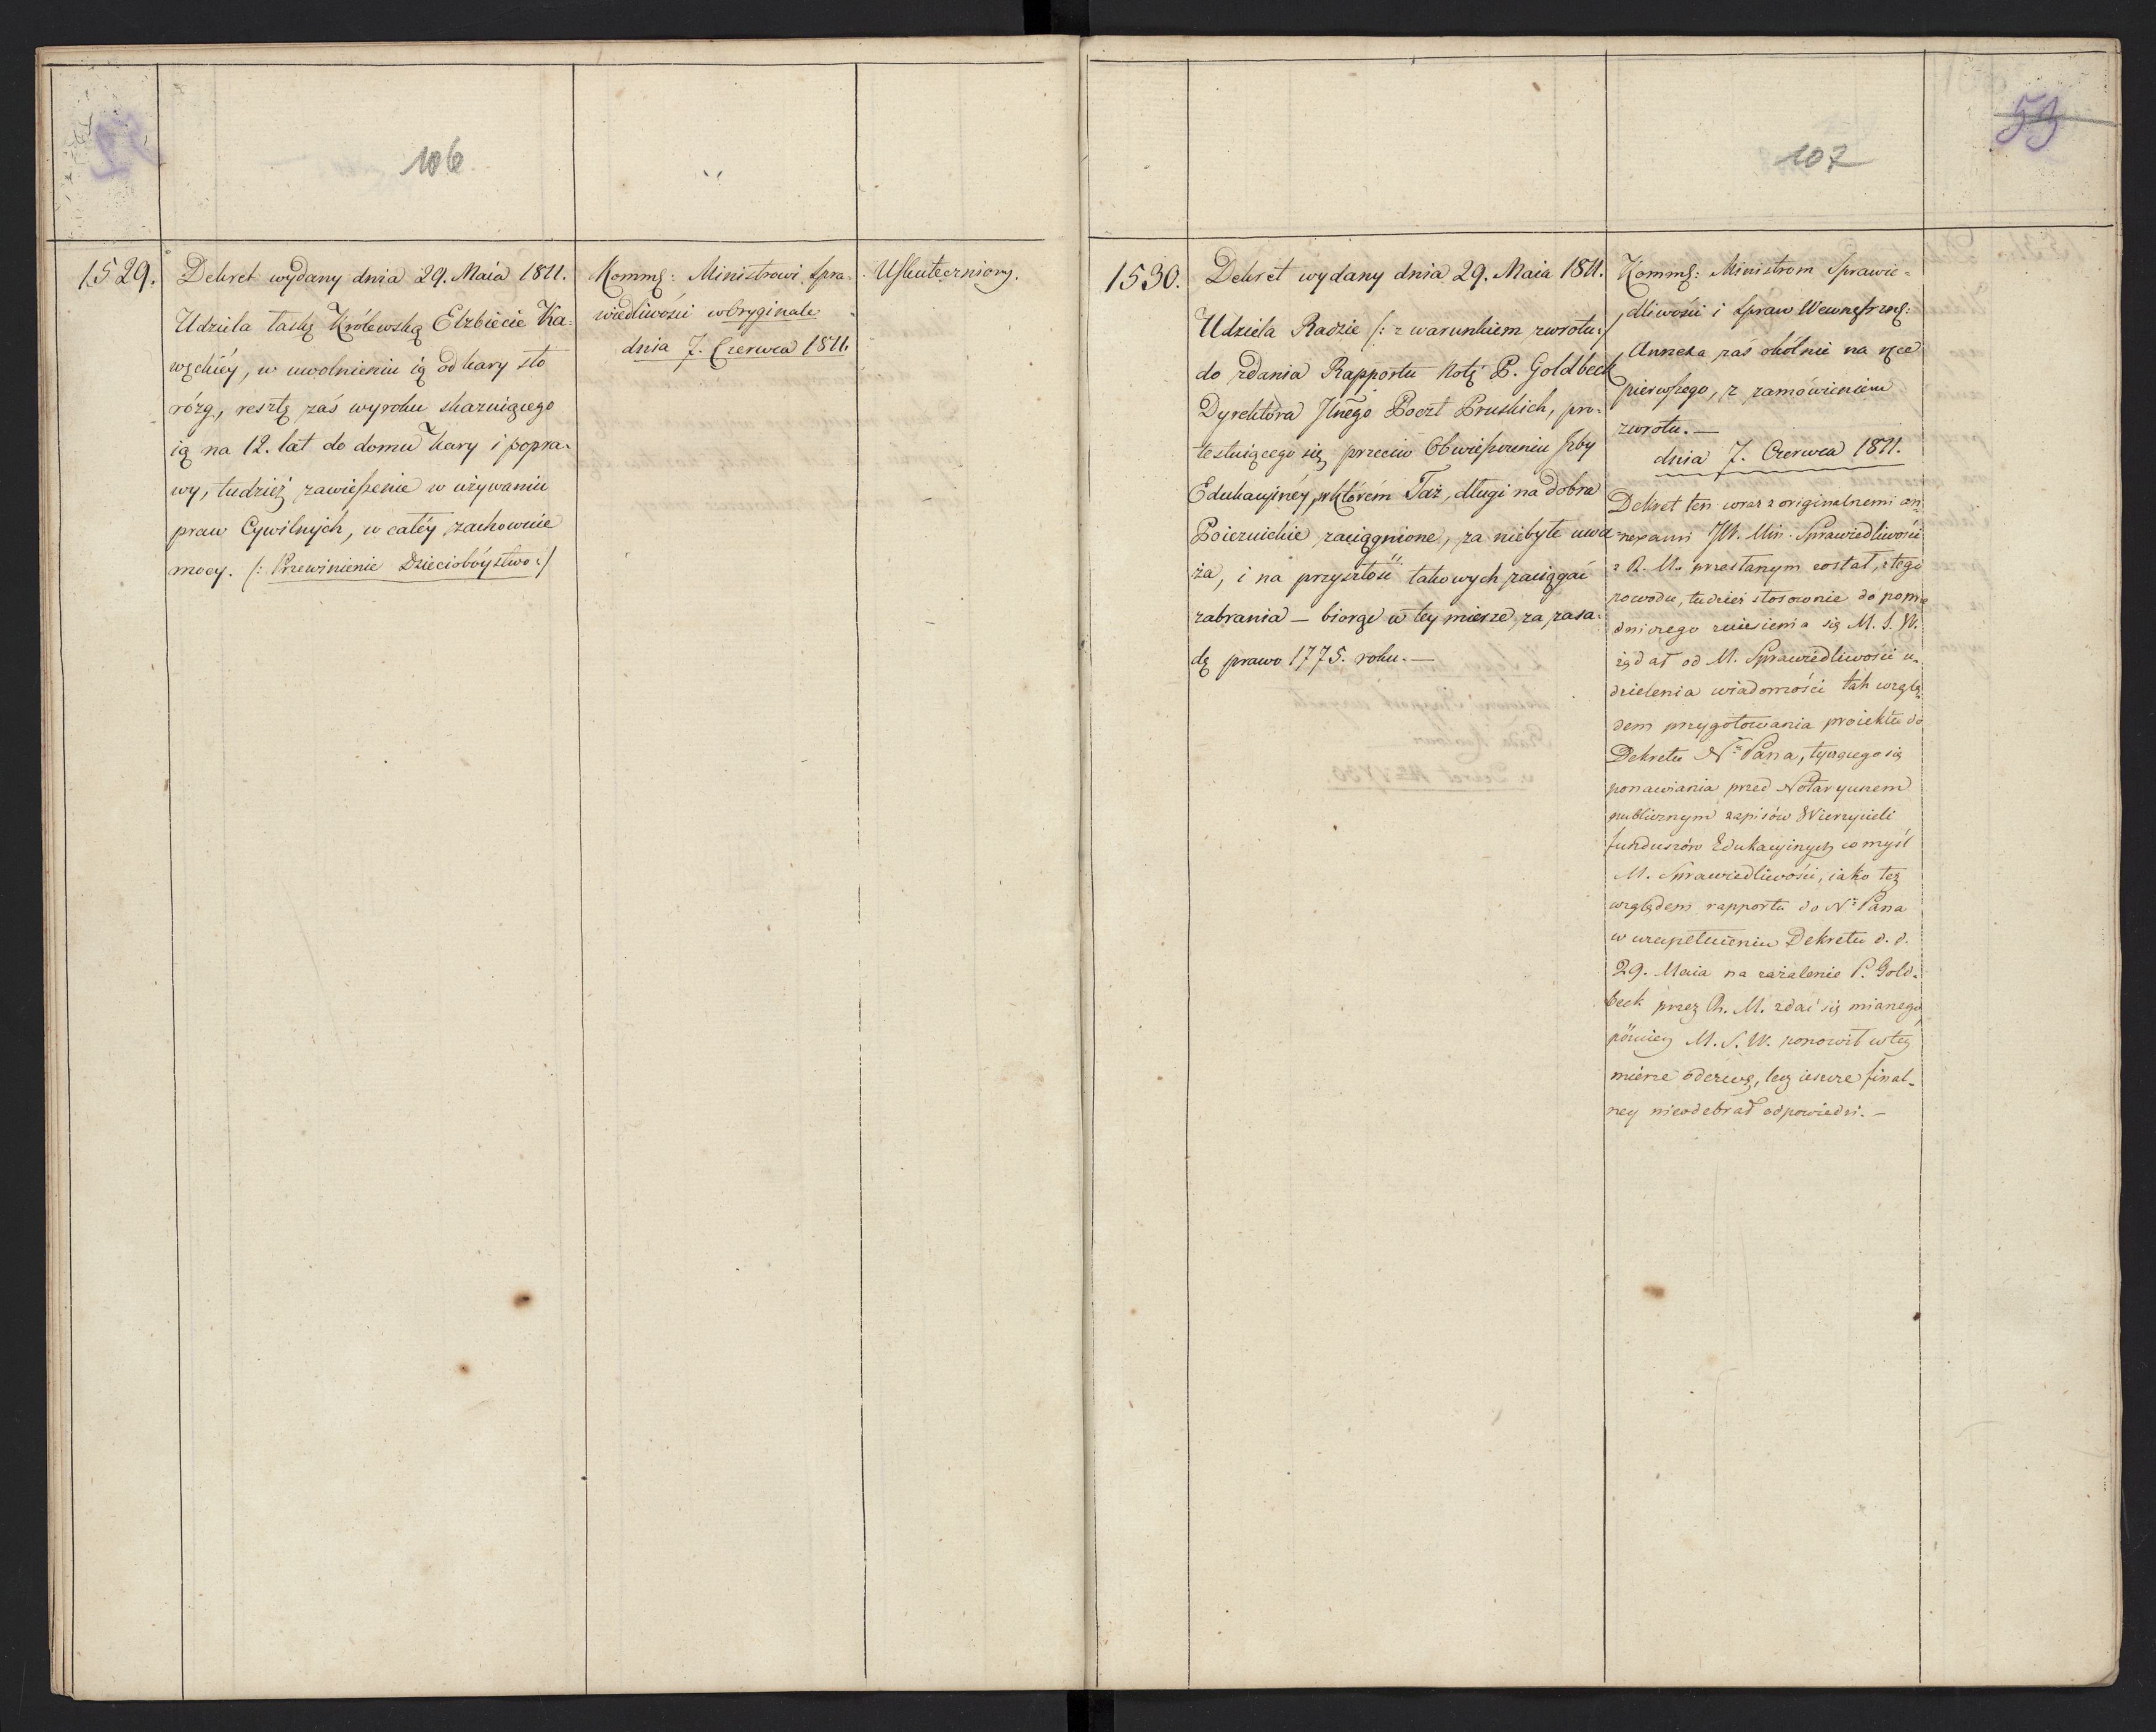 106
1529.
Dekret wydany dnia 29. Maia 1811.
Udziela łaskę Królewską Elzbiecie Ka=
węckiéy, w uwolnieniu ią od kary sto
rózg, resztę zaś wyroku skazuiącego
ią na 12. lat do domu kary i popra-
wy, tudzież zawieszenie w używaniu
praw Cywilnych, w całéy zachowuie
mocy. (: Przewinienie Dzieciobóystwo :)
Kommg: Ministrowi Spra-
wiedliwości w Oryginale
dnia 7. Czerwca 1811.
Uskuteczniony.
107
53
1530.
Dekret wydany dnia 29. Maia 1811.
Udziela Radzie (: z warunkiem zwrotu :)
do zdania Rapportu Notę P. Goldbeck
Dyrektora Jlnego Poczt Pruskich, pro-
testuiącego się przeciw Obwieszczeniu Izby
Edukacyinéy, w którém Taż, długi na dobra
Poiezuickie zaciągnione, za niebyłe uwa
ża, i na przyszłość takowych zaciągać
zabrania — biorąc w tey mierze za zasa-
dę prawo 1775. roku. —
Kommg: Ministrom Sprawie=
dliwości i Spraw Wewnętrzng:
Annexa zaś okólnie na ręce
pierwszego, z zamówieniem
zwrotu. —
dnia 7. Czerwca 1811.
Dekret ten wraz z originalnemi an
nexami JW. Min. Sprawiedliwości
z R. M. przesłanym został, z tego
powodu, tudzież stosownie do poprze
dniczego zniesienia się M. S. W.
żądał od M. Sprawiedliwości u-
dzielenia wiadomości tak wzglę
dem przygotowania proiektu do
Dekretu N. Pana, tyczącego się
ponawiania przed Notaryuszem
publicznym zapisów Wierzycieli
funduszów Edukacyinych w myśl
M. Sprawiedliwości, iako też
względem rapportu do N. Pana
w uzupełnieniu Dekretu d. d.
29. Maia na zażalenie P. Gold-
beck przez R. M. zdać się mianego,
późniey M. S. W. ponowił w tey
mierze odezwę, lecz ieszcze final-
ney nieodebrał odpowiedzi. —